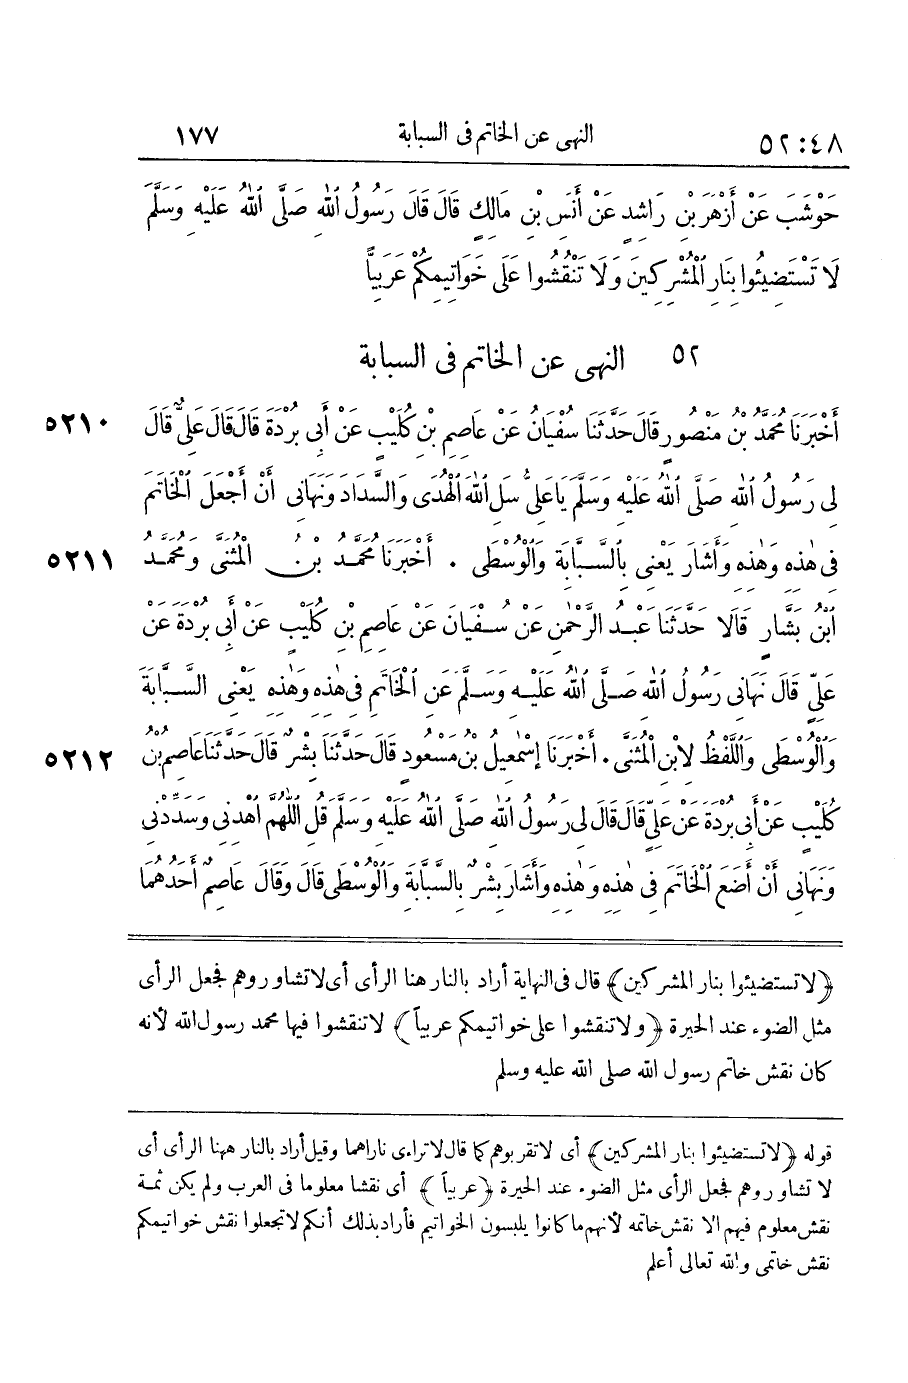 ٥٢:٤٨ النهى عن الخاتم فى السبابة ١٧٧
حَوْشَبَ عَنْ أَزْهَرَ بْنِ رَاشِدٍ عَنْ أَنَسِ بْنِ مَالِكٍ قَالَ قَالَ رَسُولُ اللهِ صَلَّى اللهُ عَلَيْهِ وَسَلَّمَ
لَا تَسْتَضِيئُوا بِنَارِ الْمُشْرِكِينَ وَلَا تَنْقُشُوا عَلَى خَوَاتِيمِكُمْ عَرَبِيًّا
٥٢ النهى عن الخاتم فى السبابة
أَخْبَرَنَا مُحَمَّدُ بْنُ مَنْصُورٍ قَالَ حَدَّثَنَا سُفْيَانُ عَنْ عَاصِمِ بْنِ كُلَيْبٍ عَنْ أَبِى بُرْدَةَ قَالَ قَالَ عَلِىٌّ قَالَ ٥٢١٠
لِى رَسُولُ اللهِ صَلَّى اللهُ عَلَيْهِ وَسَلَّمَ يَا عَلِىُّ سَلِ اللهَ الْهُدَى وَالسَّدَادَ وَنَهَانِى أَنْ أَجْعَلَ الْخَاتَمَ
فِى هٰذِهِ وَهٰذِهِ وَأَشَارَ يَعْنِى بِالسَّبَّابَةِ وَالْوُسْطَى . أَخْبَرَنَا مُحَمَّدُ بْنُ الْمُثَنَّى وَمُحَمَّدُ ٥٢١١
ابْنُ بَشَّارٍ قَالَا حَدَّثَنَا عَبْدُ الرَّحْمٰنِ عَنْ سُفْيَانَ عَنْ عَاصِمِ بْنِ كُلَيْبٍ عَنْ أَبِى بُرْدَةَ عَنْ
عَلِىٍّ قَالَ نَهَانِى رَسُولُ اللهِ صَلَّى اللهُ عَلَيْهِ وَسَلَّمَ عَنِ الْخَاتَمِ فِى هٰذِهِ وَهٰذِهِ يَعْنِى السَّبَّابَةَ
وَالْوُسْطَى وَاللَّفْظُ لِابْنِ الْمُثَنَّى . أَخْبَرَنَا إِسْمٰعِيلُ بْنُ مَسْعُودٍ قَالَ حَدَّثَنَا بِشْرٌ قَالَ حَدَّثَنَا عَاصِمُ بْنُ ٥٢١٢
كُلَيْبٍ عَنْ أَبِى بُرْدَةَ عَنْ عَلِىٍّ قَالَ قَالَ لِى رَسُولُ اللهِ صَلَّى اللهُ عَلَيْهِ وَسَلَّمَ قُلِ اللّٰهُمَّ اهْدِنِى وَسَدِّدْنِى
وَنَهَانِى أَنْ أَضَعَ الْخَاتَمَ فِى هٰذِهِ وَهٰذِهِ وَأَشَارَ بِشْرٌ بِالسَّبَّابَةِ وَالْوُسْطَى قَالَ وَقَالَ عَاصِمٌ أَحَدُهُمَا
﴿لا تستضيئوا بنار المشركين﴾ قال فى النهاية أراد بالنار هنا الرأى أى لا تشاوروهم فجعل الرأى
مثل الضوء عند الحيرة ﴿ولا تنقشوا على خواتيمكم عربياً﴾ لا تنقشوا فيها محمد رسول الله لأنه
كان نقش خاتم رسول الله صلى الله عليه وسلم
قوله ﴿لا تستضيئوا بنار المشركين﴾ أى لا تقربوهم كما قال لا تراءى ناراهما وقيل أراد بالنار ههنا الرأى أى
لا تشاوروهم فجعل الرأى مثل الضوء عند الحيرة ﴿عربياً﴾ أى نقشا معلوما فى العرب ولم يكن ثمة
نقش معلوم فيهم الا نقش خاتمه لأنهم ما كانوا يلبسون الخواتيم فأراد بذلك أنكم لا تجعلوا نقش خواتيمكم
نقش خاتمى والله تعالى أعلم